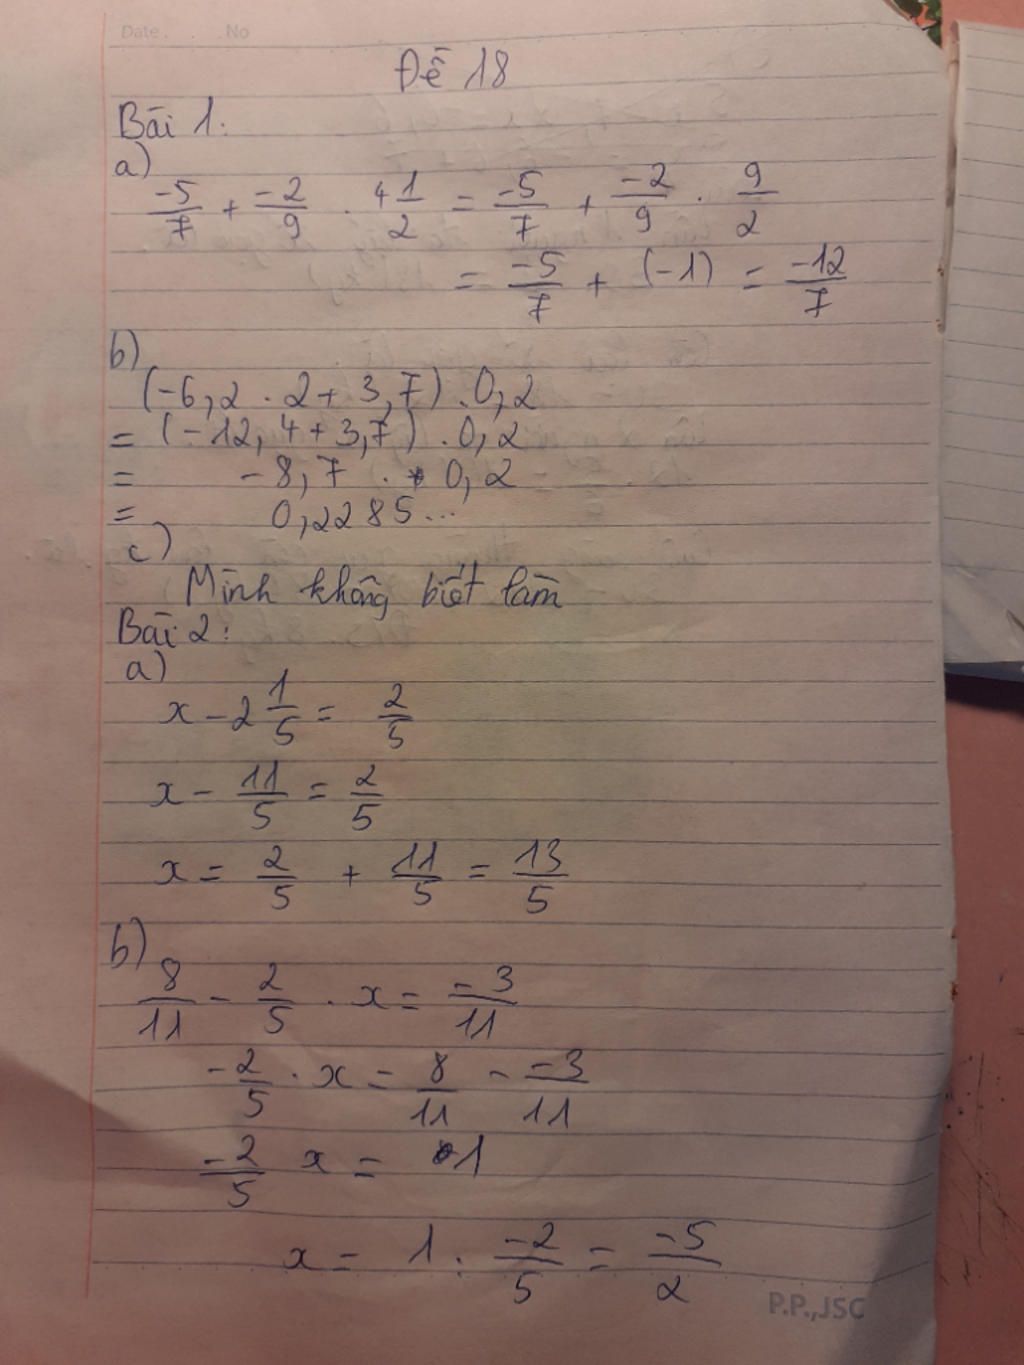 Date. . .No
Đề 18
Bài 1:
a)
-5/7 + -2/9 . 4 1/2 = -5/7 + -2/9 . 9/2
= -5/7 + (-1) = -12/7
b)
(-6,2 . 2 + 3,7) . 0,2
= (-12,4 + 3,7) . 0,2
= -8,7 . 0,2
= 0,2285...
c)
Mình không biết làm
Bài 2:
a)
x - 2 1/5 = 2/5
x - 11/5 = 2/5
x = 2/5 + 11/5 = 13/5
b)
8/11 - 2/5 . x = -3/11
-2/5 . x = 8/11 - -3/11
-2/5 x = 1
x = 1 : -2/5 = -5/2
P.P.,JSC